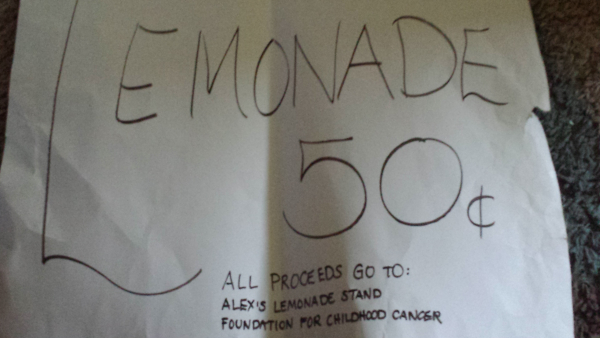 LEMONADE
50¢
ALL PROCEEDS GO TO:
ALEX'S LEMONADE STAND
FOUNDATION FOR CHILDHOOD CANCER